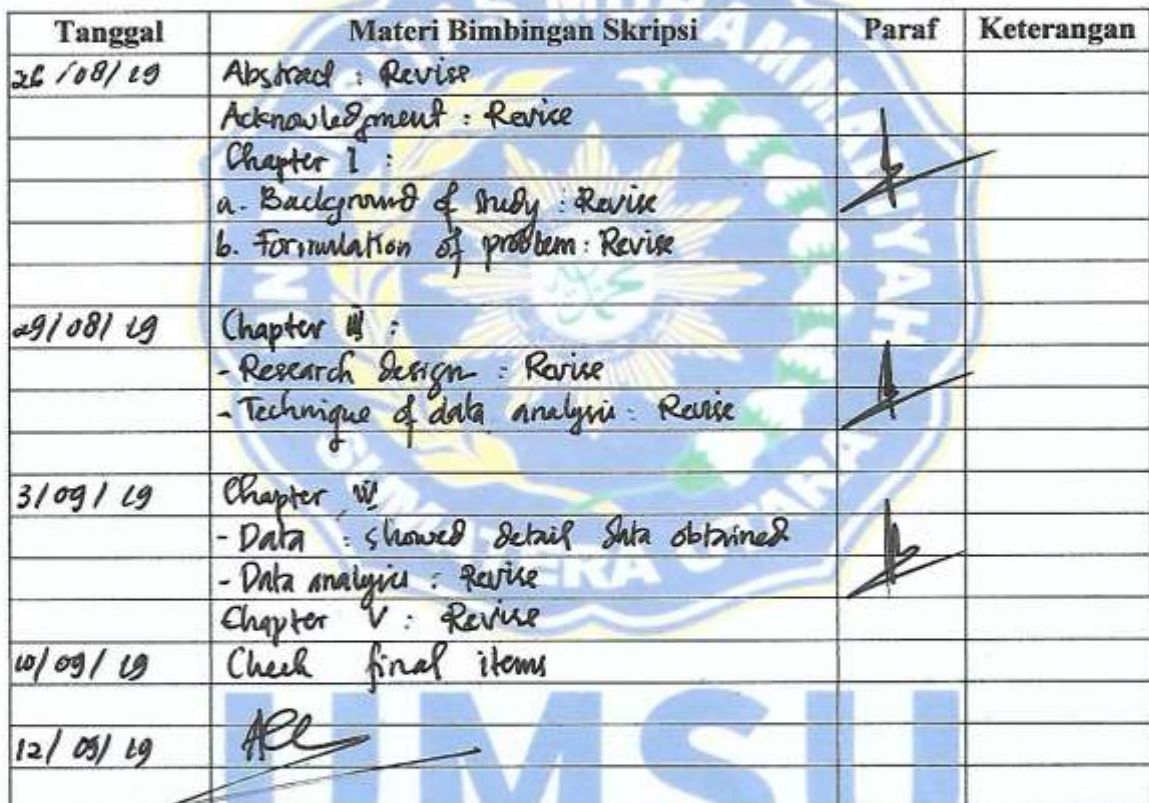 Tanggal Materi Bimbingan Skripsi Paraf Keterangan
26/08/19 Abstract : Revise
Acknowledgment : Revice
Chapter I :
a. Background of study : Revise
b. Formulation of problem : Revise
29/08/19 Chapter III :
- Research design : Revise
- Technique of data analysis : Revise
3/09/19 Chapter IV
- Data : showed detail data obtained
- Data analysis : Revise
Chapter V : Revise
10/09/19 Check final items
12/09/19 Acc
MUHAMMADIYAH
SUMATERA UTARA
UMSU